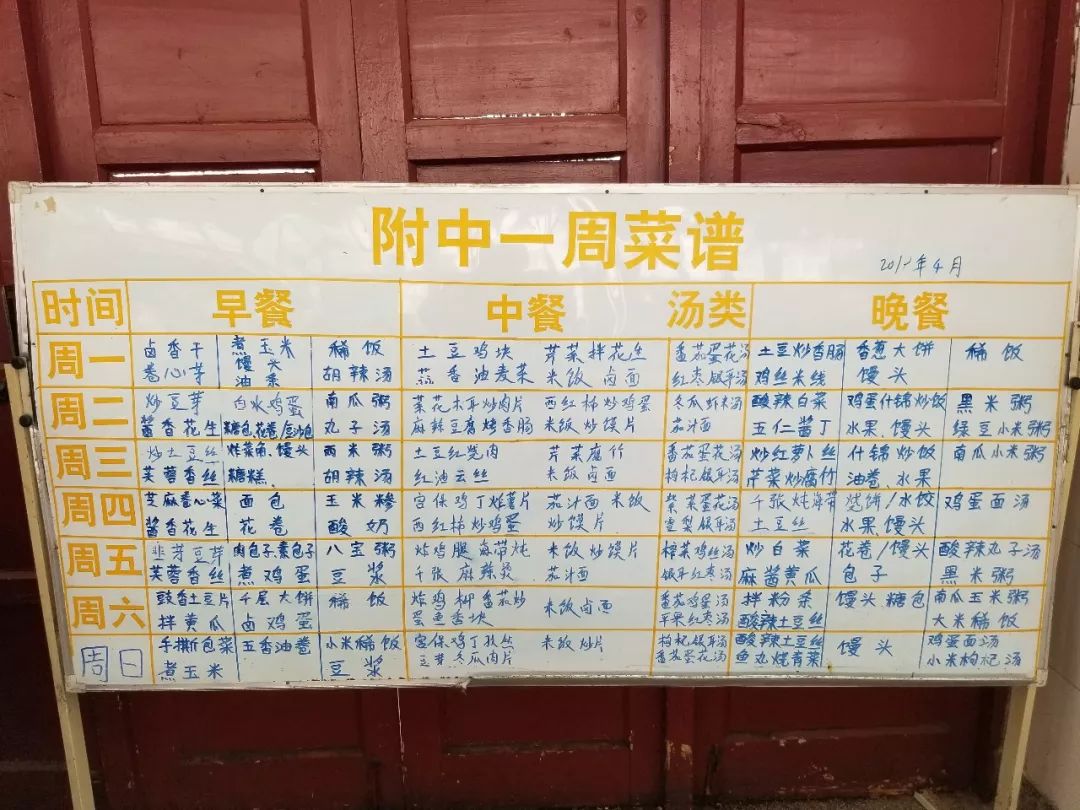 附中一周菜谱
年4月
时间 早餐 中餐 汤类 晚餐
周一 卤香干 煮玉米 稀饭 土豆鸡块 芹菜拌花生 番茄蛋花汤 土豆炒香肠 香葱大饼 稀饭
卷心芽 馒头 胡辣汤 蒜香油麦菜 米饭 卤面 红枣银耳汤 鸡丝米线 馒头
油条
周二 炒豆芽 白水鸡蛋 南瓜粥 菜花木耳炒肉片 西红柿炒鸡蛋 冬瓜虾米汤 酸辣白菜 鸡蛋什锦炒饭 黑米粥
酱香花生 糖包/花卷/豆沙包 丸子汤 麻辣豆腐烤香肠 米饭 炒馍片 茄汁面 五仁酱丁 水果、馒头 绿豆小米粥
周三 炒土豆丝 炸菜角、馒头 两米粥 土豆红烧肉 芹菜腐竹 番茄蛋花汤 炒红萝卜丝 什锦炒饭 南瓜小米粥
芙蓉香丝 糖糕 胡辣汤 红油云丝 米饭 卤面 枸杞银耳汤 芹菜炒腐竹 油卷、水果
周四 芝麻卷心菜 面包 玉米糁 宫保鸡丁炸薯片 茄汁面 米饭 紫菜蛋花汤 千张炖海带 烧饼/水饺 鸡蛋面汤
酱香花生 花卷 酸奶 西红柿炒鸡蛋 炒馍片 雪梨银耳汤 土豆丝 水果、馒头
周五 韭芽豆芽 肉包子、素包子 八宝粥 炸鸡腿 海带炖 米饭 炒馍片 榨菜鸡丝汤 炒白菜 花卷/馒头 酸辣丸子汤
芙蓉香丝 煮鸡蛋 豆浆 千张 麻辣烫 茄汁面 银耳红枣汤 麻酱黄瓜 包子 黑米粥
周六 豉香土豆片 千层大饼 稀饭 炸鸡柳 番茄炒 米饭卤面 番茄鸡蛋汤 拌粉条 馒头 糖包 南瓜玉米粥
拌黄瓜 卤鸡蛋 蛋 鱼香块 苹果红枣汤 酸辣土豆丝 大米稀饭
周日 手撕包菜 五香油卷 小米稀饭 宫保鸡丁 米饭 炒片 枸杞银耳汤 酸辣土豆丝 馒头 鸡蛋面汤
煮玉米 豆浆 豆芽 冬瓜肉片 番茄蛋花汤 鱼丸烧青菜 小米枸杞汤